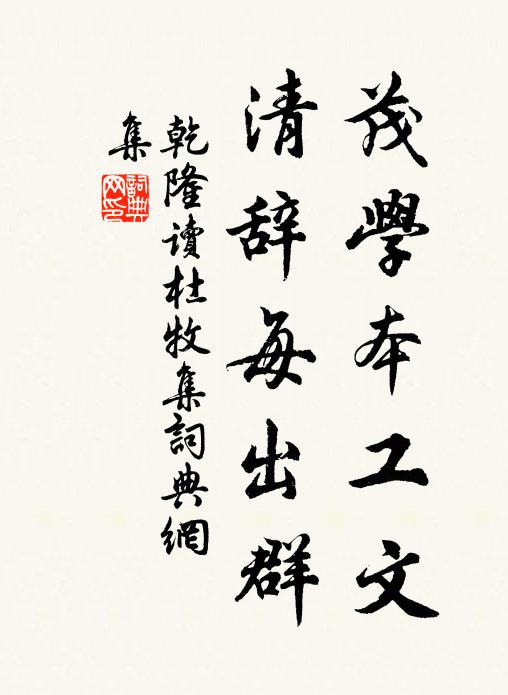 茂學本工文
清辞每出群
乾隆讀杜牧集詞典網
集
詞典
网印